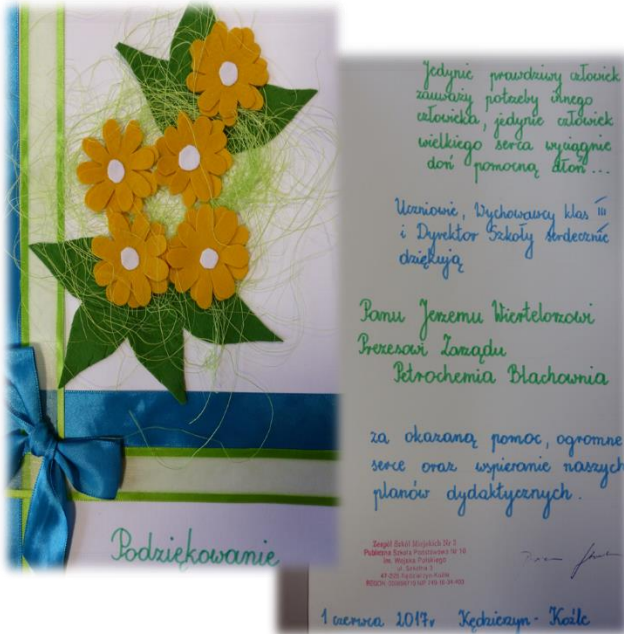 Podziękowanie
Jedynie prawdziwy człowiek
zauważy potrzeby innego
człowieka, jedynie człowiek
wielkiego serca wyciągnie
doń pomocną dłoń...
Uczniowie, Wychowawcy klas III
i Dyrektor Szkoły serdecznie
dziękują
Panu Jerzemu Wiertelorzowi
Prezesowi Zarządu
Petrochemia Blachownia
za okazaną pomoc, ogromne
serce oraz wspieranie naszych
planów dydaktycznych.
Zespół Szkół Miejskich Nr 2
Publiczna Szkoła Podstawowa Nr
im. Wojska Polskiego
ul.
1 czerwca 2017r Kędzierzyn-Koźle